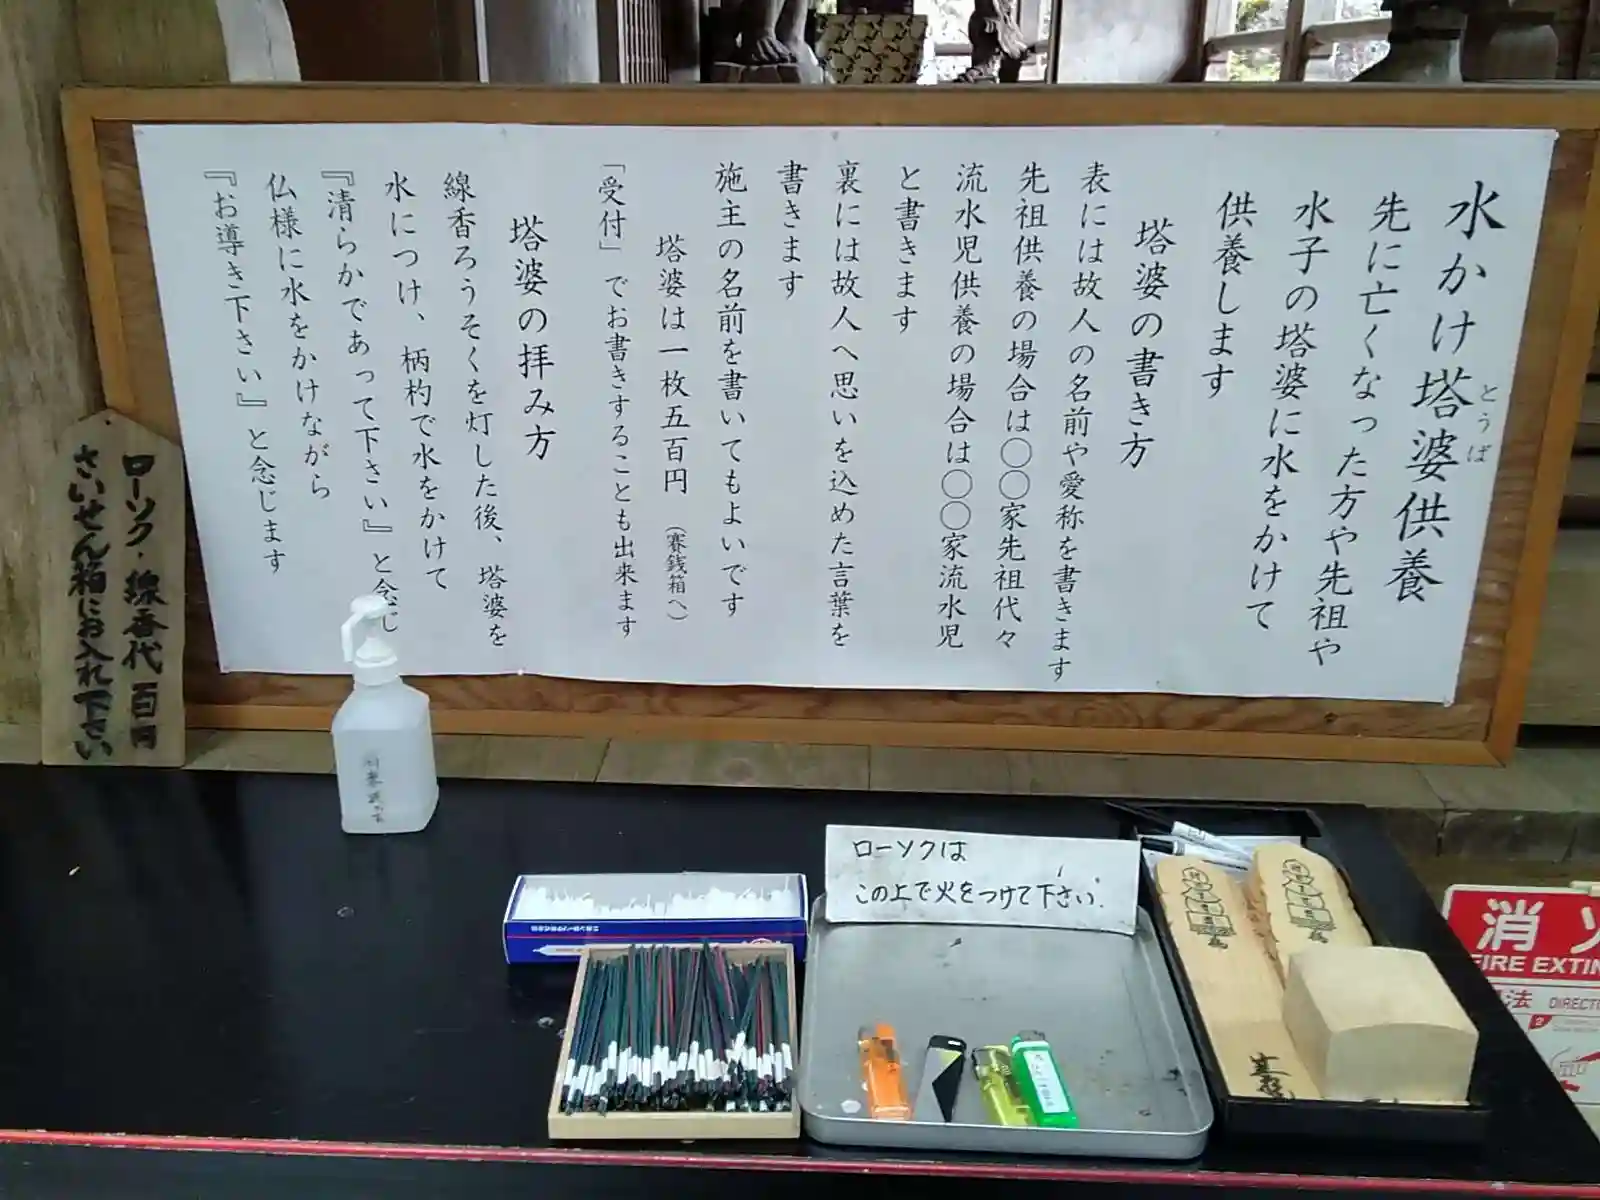 水かけ塔婆供養
とうば
先に亡くなった方や先祖や
水子の塔婆に水をかけて
供養します
塔婆の書き方
表には故人の名前や愛称を書きます
先祖供養の場合は〇〇家先祖代々
流水児供養の場合は〇〇家流水児
と書きます
裏には故人へ思いを込めた言葉を
書きます
施主の名前を書いてもよいです
塔婆は一枚五百円（賽銭箱へ）
「受付」でお書きすることも出来ます
塔婆の拝み方
線香ろうそくを灯した後、塔婆を
水につけ、柄杓で水をかけて
『清らかであって下さい』と念じ
仏様に水をかけながら
『お導き下さい』と念じます
ローソク・線香代 百円
さいせん箱にお入れ下さい
ローソクは
この上で火をつけて下さい.
消火
FIRE EXTIN
法 DIRECT
2